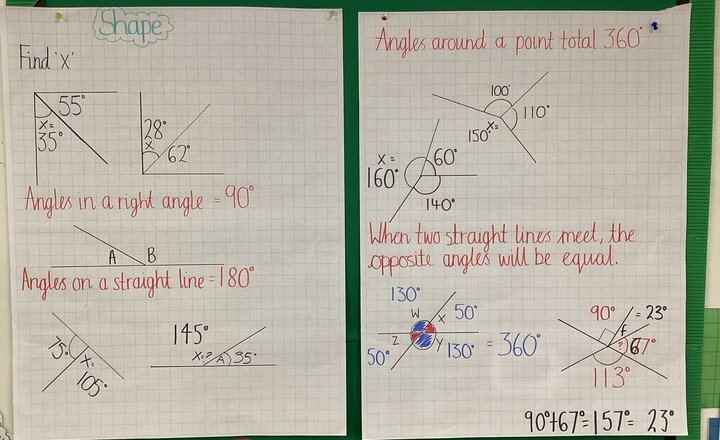 Shape
Find 'x'
55°
x=
35°
28°
x
62°
Angles in a right angle = 90°
A B
Angles on a straight line = 180°
75°
x=
105°
145°
x=?
A
35°
Angles around a point total 360°
100°
110°
x=
150°
x=
160°
60°
140°
When two straight lines meet, the
opposite angles will be equal.
130°
W
X
50°
Z
Y
50°
130°
= 360°
90°
= 23°
f
?
67°
113°
90°+67°=157°= 23°